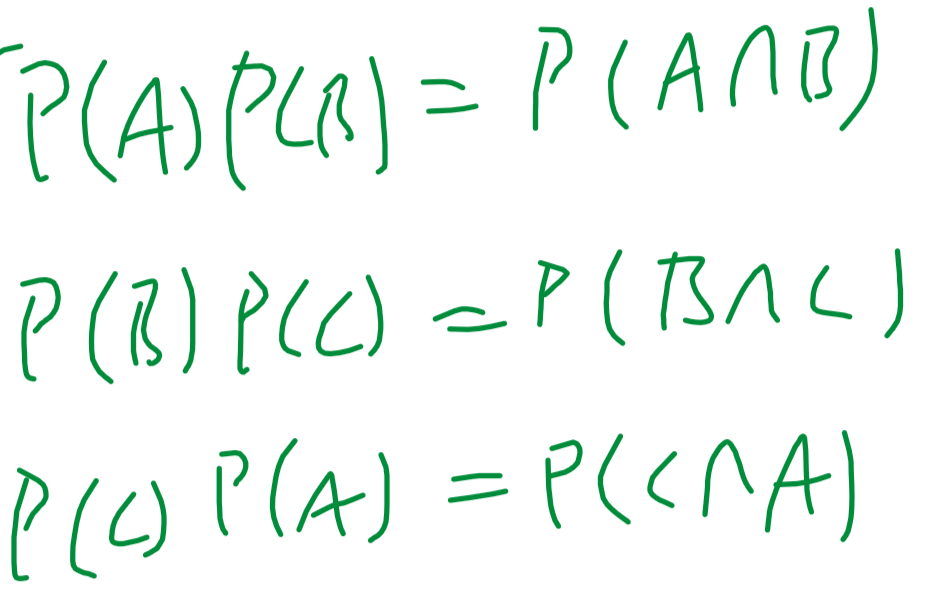 P(A)P(B) = P(A∩B)
P(B)P(C) = P(B∩C)
P(C)P(A) = P(C∩A)